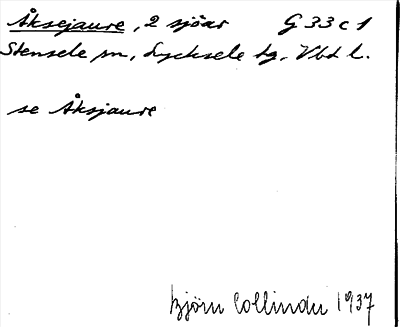 Åksejaure, 2 sjöar G 33 c 1
Stensele sn, Lycksele tg, Vbd l.
se Åksjaure
Björn Collinder 1937